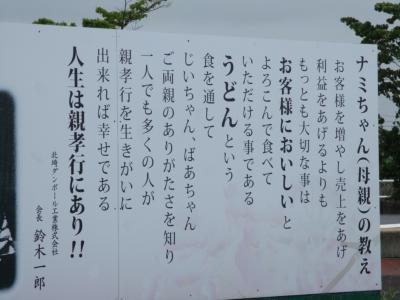 ナミちゃん(母親)の教え
お客様を増やし売上をあげ
利益をあげるよりも
もっとも大切な事は
お客様においしいと
よろこんで食べて
いただける事である
うどんという
食を通して
じいちゃん、ばあちゃん
ご両親のありがたさを知り
一人でも多くの人が
親孝行を生きがいに
出来れば幸せである
人生は親孝行にあり!!
北埼ダンボール工業株式会社
会長 鈴木一郎